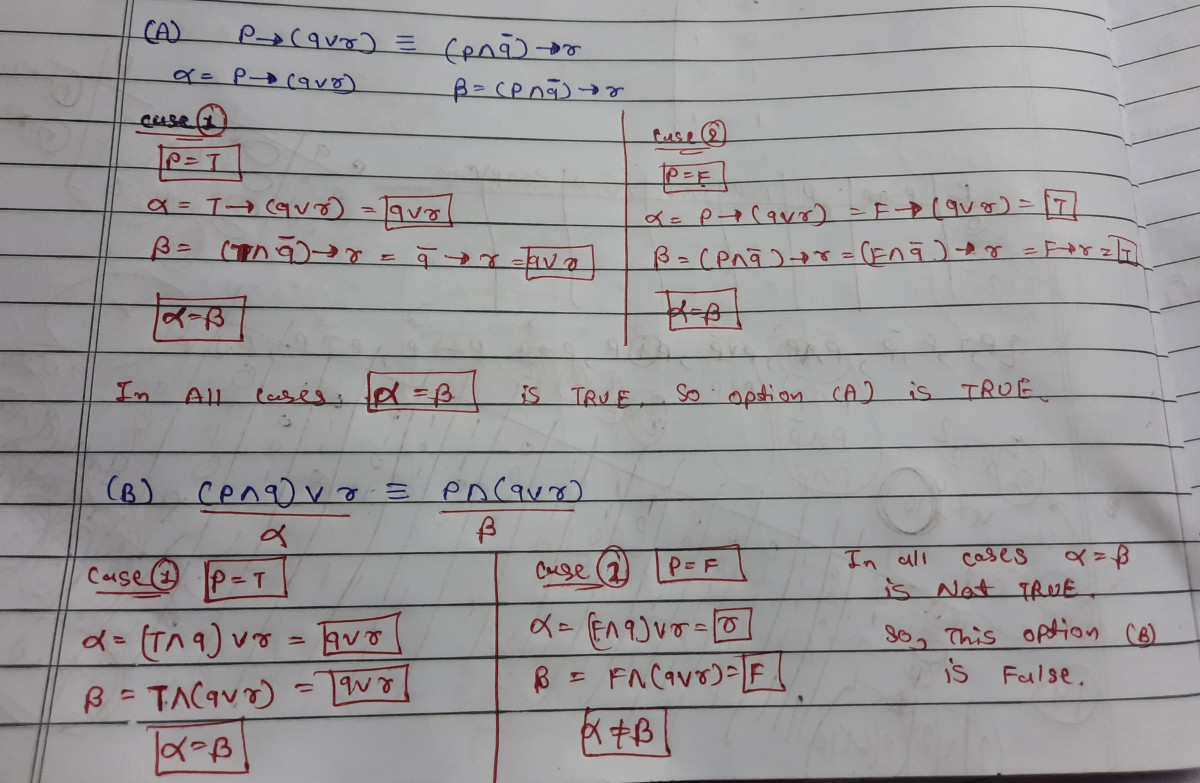 (A) P→(q∨r) ≡ (P∧q̄)→r
α = P→(q∨r) β = (P∧q̄)→r
case ①
P = T
α = T→(q∨r) = q∨r
β = (T∧q̄)→r = q̄→r = q∨r
α=β
case ②
P=F
α = P→(q∨r) = F→(q∨r) = T
β = (P∧q̄)→r = (F∧q̄)→r = F→r = T
α=β
In All cases, α=β is TRUE, So option (A) is TRUE.
(B) (P∧q)∨r ≡ P∧(q∨r)
α β
case ① P=T
α = (T∧q)∨r = q∨r
β = T∧(q∨r) = q∨r
α=β
case ② P=F
α = (F∧q)∨r = r
β = F∧(q∨r) = F
α≠β
In all cases α=β
is Not TRUE.
So, This option (B)
is False.